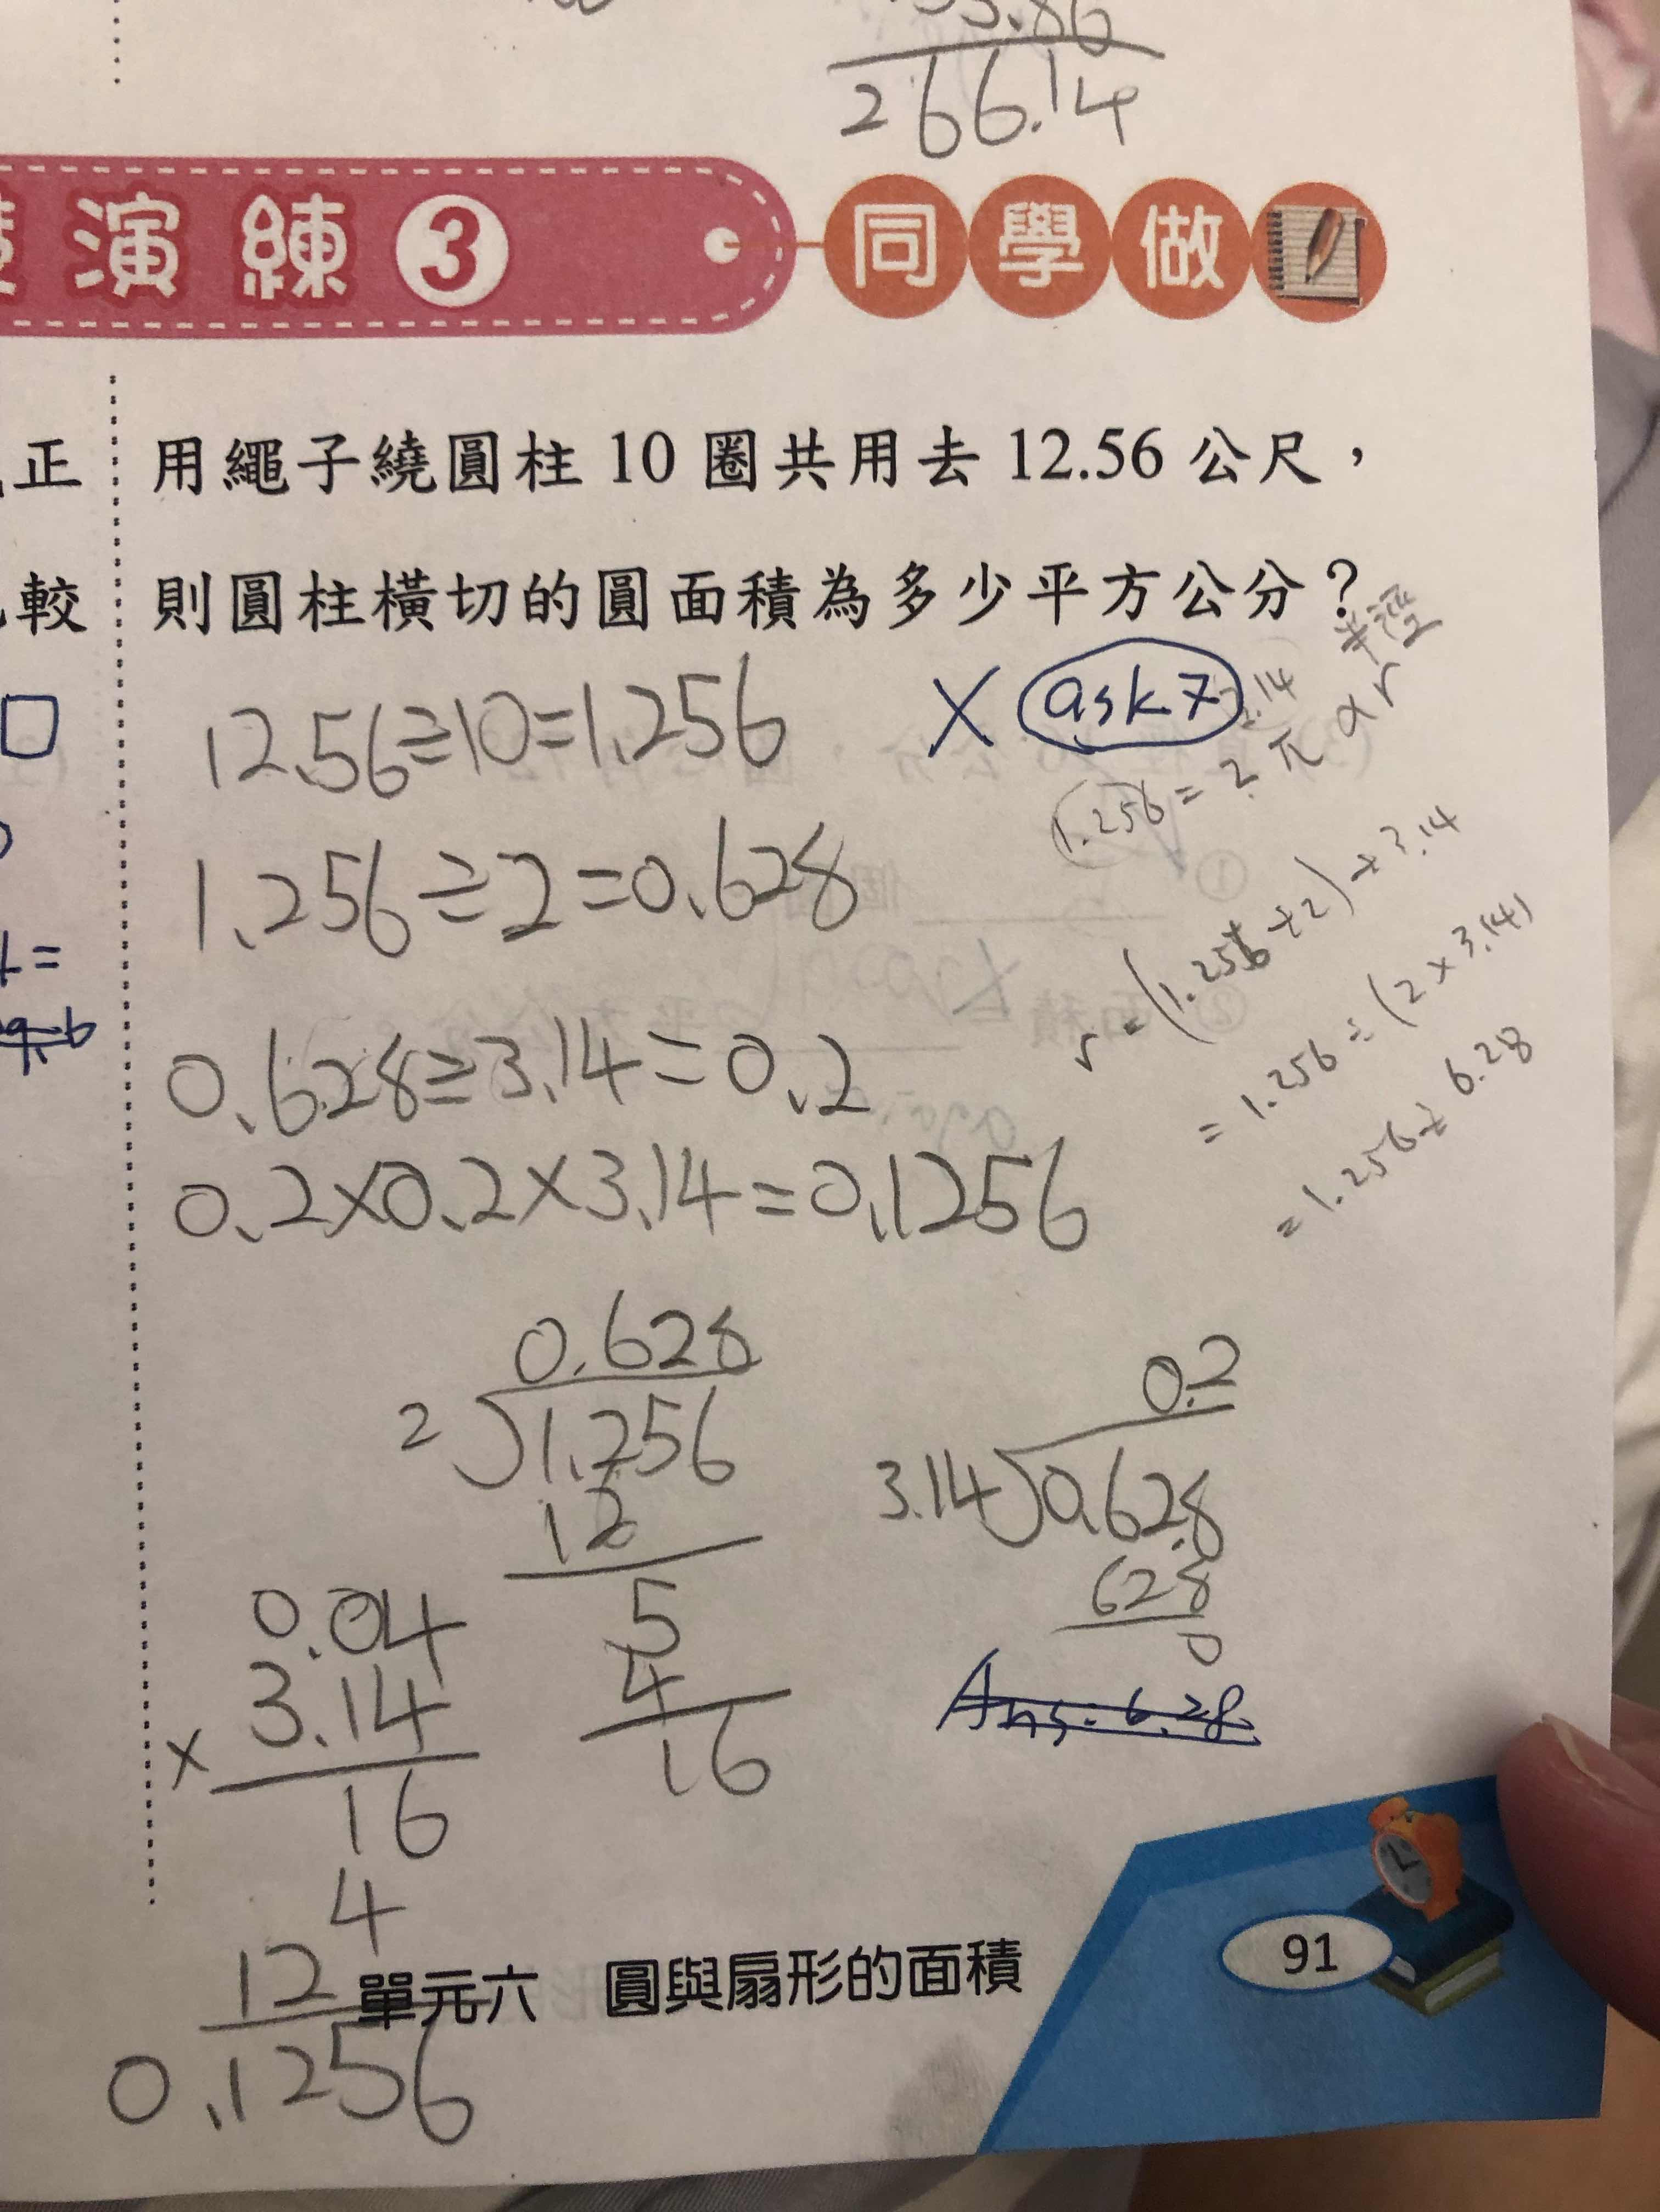 266.14
演練3 同學做
正
用繩子繞圓柱 10 圈共用去 12.56 公尺，
較
則圓柱橫切的圓面積為多少平方公分？
半徑
12.56÷10=1.256
X ask7
3.14
1.256 = 2 π r
1.256÷2=0.628
r = (1.256÷2)÷3.14
0.628÷3.14=0.2
= 1.256÷(2×3.14)
0.2×0.2×3.14=0.1256
= 1.256÷6.28
0.628
2 1.256
12
5
4
16
0.2
3.14 0.628
628
0
Ans: 6.28
0.04
× 3.14
16
4
12
0.1256
單元六 圓與扇形的面積
91